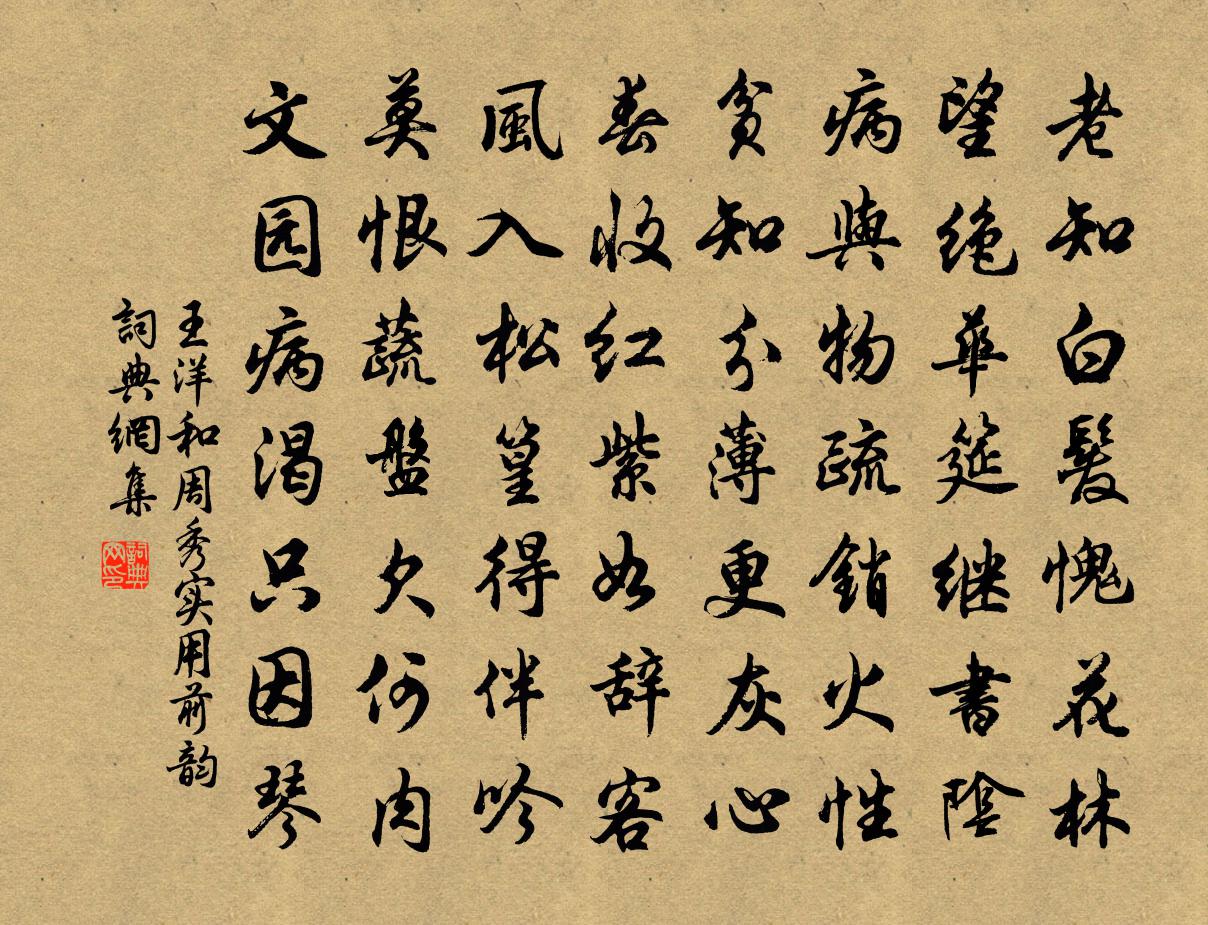 老知白髮愧花林
望绝華筵继書陰
病與物疏銷火性
貧知分薄更灰心
春收红紫如辞客
風入松篁得伴吟
莫恨蔬盤欠何肉
文园病渴只因琴
王洋和周秀实用前韵
詞典網集
詞典网印